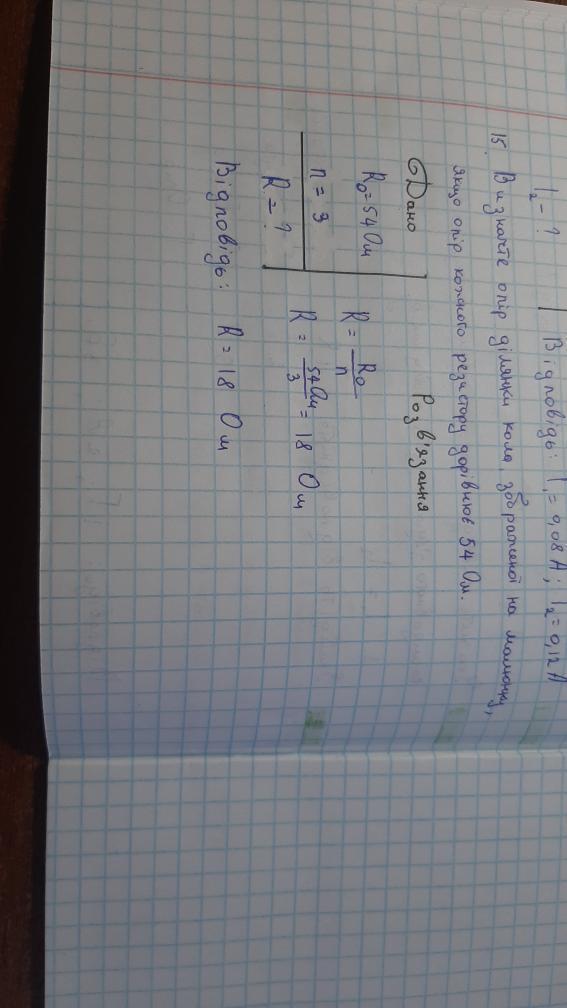 I₂ - ?
Відповідь: I₁ = 0,08 А; I₂ = 0,12 А
15. Визначте опір ділянки кола, зображеної на малюнку,
якщо опір кожного резистору дорівнює 54 Ом.
Дано
Розв'язання
R₀ = 54 Ом
n = 3
R = ?
R = R₀/n
R = 54 Ом/3 = 18 Ом
Відповідь: R = 18 Ом